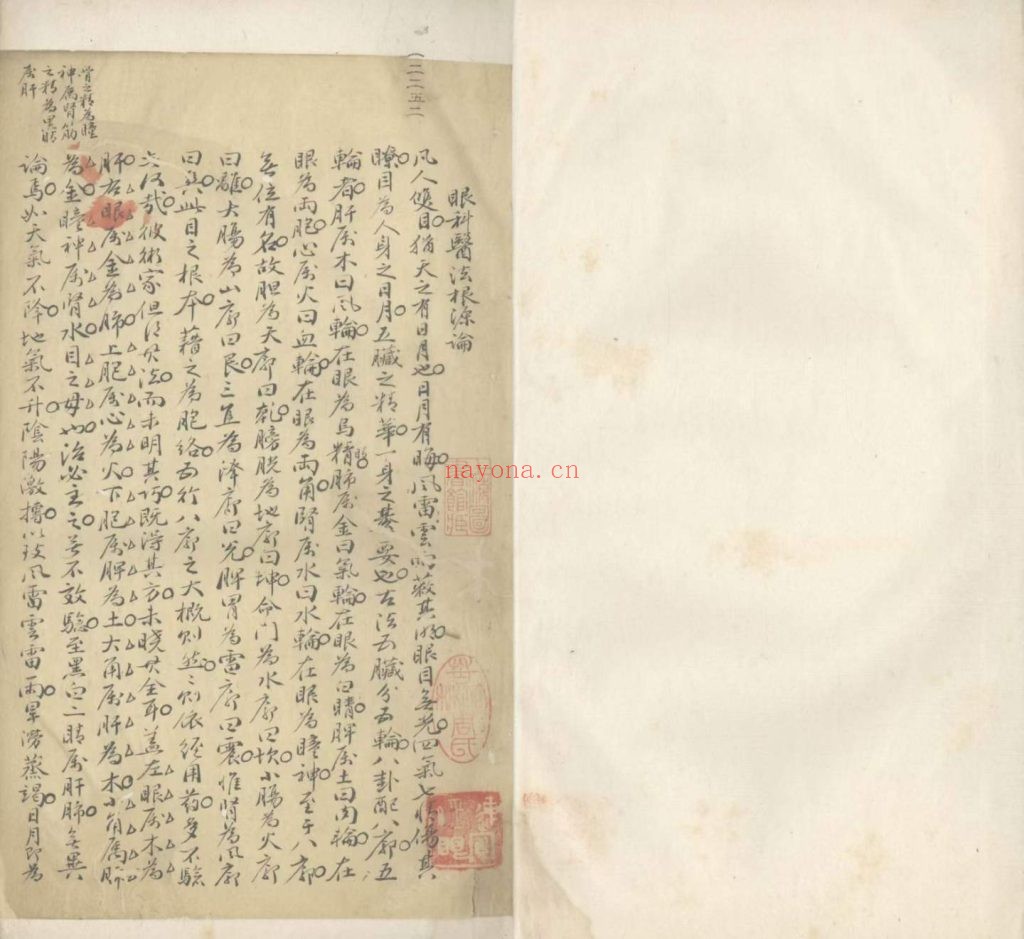 (二二五二
眼科醫法根源論
凡人雙目猶天之有日月也日月有晦風雷雲雨蔽其明眼目無光四氣七情傷其
瞭目為人身之日月五臟之精華一身之要也古法五臟分五輪八卦配八廓五
輪者肝属木曰風輪在眼為烏睛肺属金曰氣輪在眼為白睛脾属土曰肉輪在
眼為兩胞心属火曰血輪在眼為兩角腎属水曰水輪在眼為瞳神至于八廓
無位有名故胆為天廓曰乾膀胱為地廓曰坤命门為水廓曰坎小腸為火廓
曰離大腸為山廓曰艮三焦為澤廓曰兑脾胃為雷廓曰震惟腎為風廓
曰巽此目之根本藉之為胞络五行八廓之大概则然〻则依經用药多不驗
六何哉彼術家但得其法而未明其巧既得其方未晓其全耳盖左眼属木為
肝右眼属金為肺上胞属心為火下胞属脾為土大角属肝為木小角属肺
為金瞳神属腎水目之母也治必主之無不效驗至黑白二睛属肝肺無異
論焉如天氣不降地氣不升陰陽激搏以致風雷雲雷雨旱澇蒸竭日月即為
骨之精為瞳
神属腎筋
之精為黑睛
属肝
nayona.cn